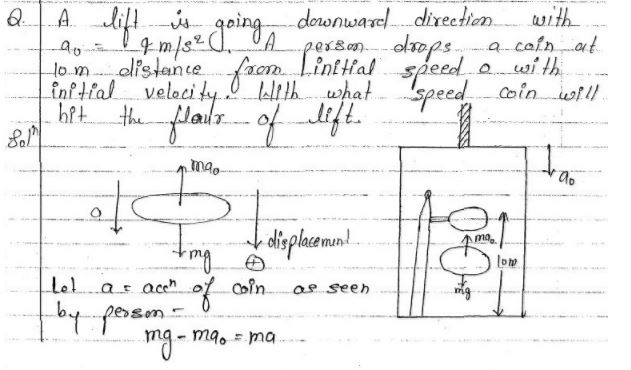 Q. A lift is going downward direction with
a₀ = 9 m/s². A person drops a coin at
10 m distance from initial speed 0 with
initial velocity. With what speed coin will
hit the flour of lift.
Solⁿ
ma₀
a₀
a
displacement
mg
ma₀
10m
mg
Let a = accⁿ of coin as seen
by person -
mg - ma₀ = ma